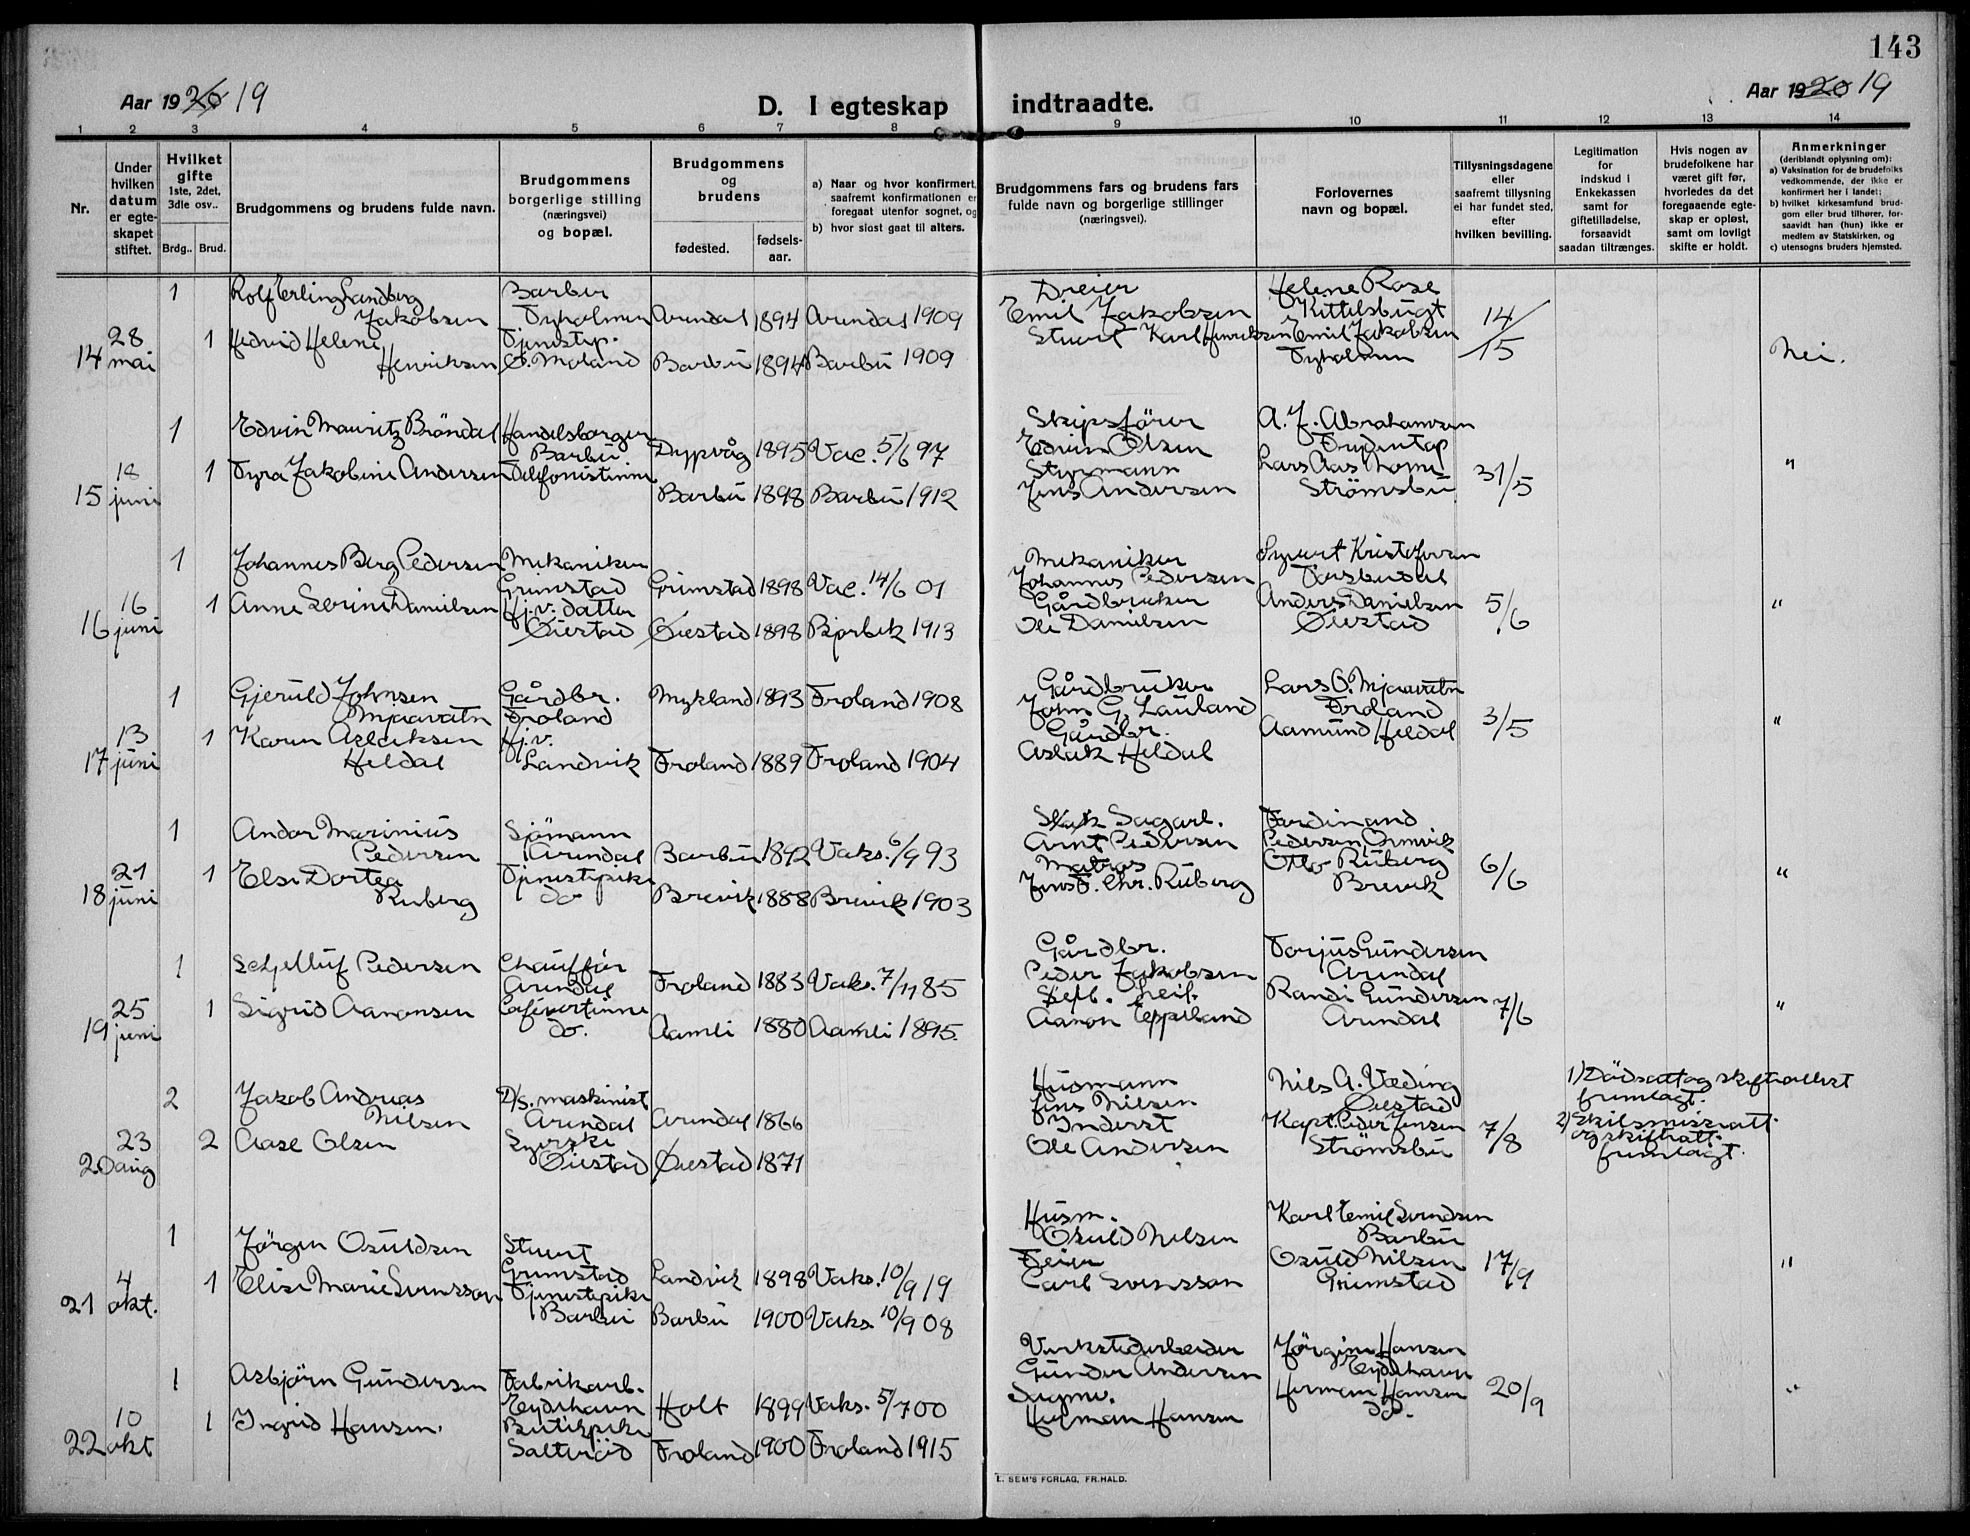 143
Aar 1920 19
D. I egteskap indtraadte.
Aar 1920 19
1 2 3 4 5 6 7 8 9 10 11 12 13 14
Nr.
Under hvilken datum er egte-skapet stiftet.
Hvilket gifte 1ste, 2det, 3dle osv..
Brdg.. Brud.
Brudgommens og brudens fulde navn.
Brudgommens borgerlige stilling (næringsvei) og bopæl.
Brudgommens og brudens
fødested. fødsels-aar.
a) Naar og hvor konfirmert, saafremt konfirmationen er foregaat utenfor sognet, og
b) hvor sidst gaat til alters.
Brudgommens fars og brudens fars fulde navn og borgerlige stillinger (næringsvei).
Forlovernes navn og bopæl.
Tillysningsdagene eller saafremt tillysning ei har fundet sted, efter hvilken bevilling.
Legitimation for indskud i Enkekassen samt for giftetilladelse, forsaavidt saadan tiltrænges.
Hvis nogen av brudefolkene har været gift før, hvorledes da det foregaaende egte-skap er opløst, samt om lovligt skifte er holdt.
Anmerkninger (deriblandt oplysning om):
a) Vaksination for de brudefolks vedkommende, der ikke er konfirmert her i landet;
b) hvilket kirkesamfund brud-gom eller brud tilhører, for-saavidt han (hun) ikke er medlem av Statskirken, og
c) utensogns bruders hjemsted.
14 28 mai
1 Rolf Erling Sandberg Jakobsen Barber Tyholmen Arendal 1894 Arendal 1909 Dreier Emil Jakobsen Helene Rose Kittelsbugt 14/15
1 Hedvid Helene Henriksen Tjenestep. Ø. Moland Barbu 1894 Barbu 1909 Stuert Karl Henriksen Emil Jakobsen Tyholmen Nei.
15 18 juni
1 Edvin Mauritz Bröndal Handelsborger Barbu Dypvåg 1895 Vac. 5/6 97 Skipsförer Edvin Olsen A. J. Abrahamsen 31/5
1 Tyra Jakobine Andersen Telefonistinne Barbu 1898 Barbu 1912 Styrmann Jens Andersen Lars Aas Strömsbu "
16 16 juni
1 Johannes Berg Pedersen Mekaniker Grimstad Grimstad 1898 Vac. 14/6 01 Mekaniker Johannes Pedersen Syvert Kristofersen 5/6
1 Anne Serine Danielsen Hj.v. datter Øiestad Øiestad 1898 Bjorbek 1913 Gårdbruker Ole Danielsen Anders Danielsen Øiestad "
17 13 juni
1 Gjeruld Johnsen Mjaavatn Gårdbr. Froland Mykland 1893 Froland 1908 Gårdbruker John G. Lauland Lars O. Mjaavatn Froland 3/5
1 Karen Aslaksen Heldal Hj.v. Landvik Froland 1889 Froland 1904 Gårdbr. Aslak Heldal Aamund Heldal "
18 21 juni
1 Andor Marinius Pedersen Sjömann Arendal Barbu 1892 Vaks. 6/9 93 Sagarb. Arnt Pedersen Ferdinand Pedersen 6/6
1 Else Dortea Ruberg Tjenestepike do Brevik 1888 Brevik 1903 Matros Jens Chr. Ruberg Otto Ruberg Brevik "
19 25 juni
1 Pedersen Chauffør Arendal Froland 1883 Vaks. 7/11 85 Gårdbr. Peder Jakobsen Torjus Gundersen Arendal 7/6
1 Sigrid Aanonsen Cafévertinne do. Aamli 1880 Aamli 1895. Aanon Eppeland Randi Gundersen Arendal "
20 23 aug
2 Jakob Andreas Nilsen D/s. maskinist Arendal Arendal 1866 Husmann Jens Nilsen Nils A. Væding Øiestad 7/8 1) Dödsatt og skifteattest fremlagt.
2 Aase Olsen Syerske Øiestad Øiestad 1871 Inderst Ole Andersen Kapt. Peder Jensen Strömsbu 2) Skilsmisseatt. og skifteatt. fremlagt.
21 4 okt.
1 Jörgen Osuldsen Stuert Grimstad Landvik 1898 Vaks. 10/9 19 Husm. Osuld Nilsen Karl Emil Svendsen Barbu 17/9
1 Elise Marie Svensson Tjenestepike Barbu Barbu 1900 Vaks. 10/9 08 Feier Carl Svensson Osuld Nilsen Grimstad "
22 10 okt
1 Asbjörn Gundersen Fabrikarb. Eydehavn Holt 1899 Vaks. 5/7 00 Verkstedarbeider Gunder Andersen Jörgine Hansen Eydehavn 20/9
1 Ingrid Hansen. Butikpike Salteröd Froland 1900 Froland 1915 Sagmo. Herman Hansen Herman Hansen do. "
E. SEM'S FORLAG, FR.HALD.